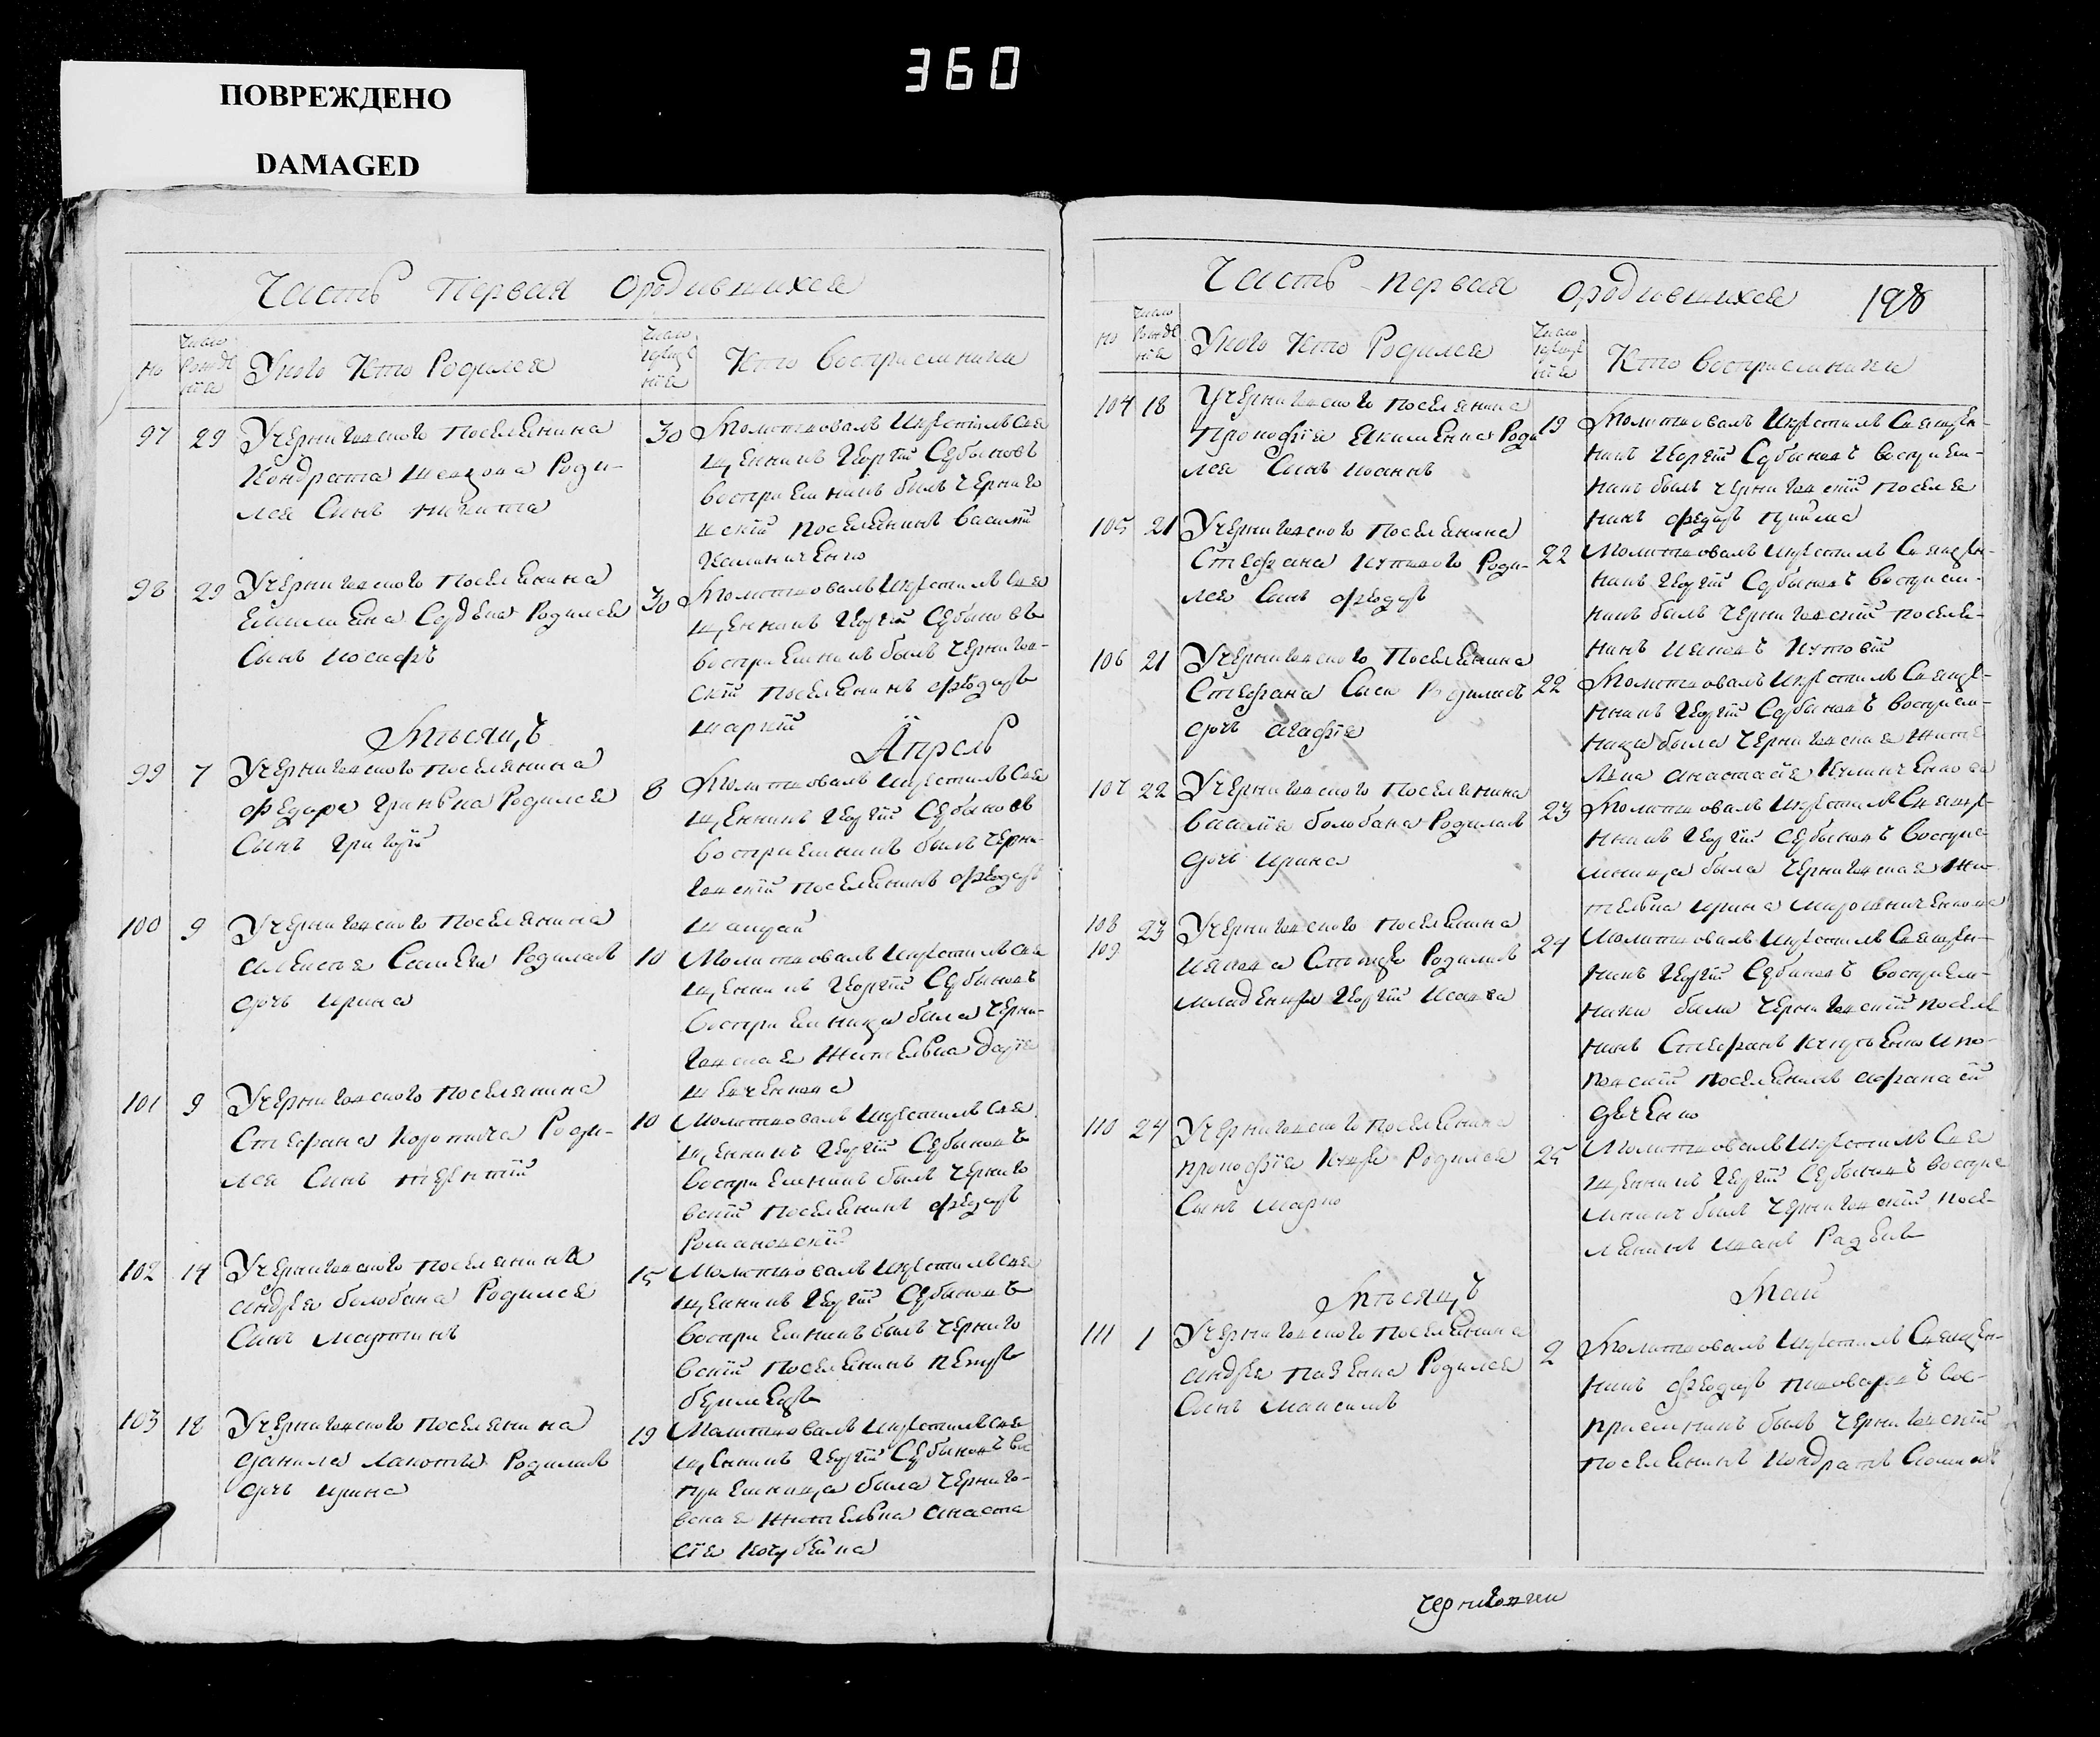 360
ПОВРЕЖДЕНО
DAMAGED
Часть Первая о родившихся
№
Число рожде нiя
У кого Кто Родился
Число крещен нiя
Кто восприемники
97 29 У Черниговского Поселянина
Кондрата Роди-
лся Сынъ Никита
30 Молитвовалъ и крестилъ Свя
щенникъ Георгiй Сербиновъ
восприемникъ былъ Черниго
вскiй поселянинъ Василiй
Калиниченко
98 29 У Черниговского Поселянина
Емилиана Родился
Сынъ Иосифъ
30 Молитвовалъ и крестилъ Свя
щенникъ Георгiй Сербиновъ
восприемникъ былъ Чернигов-
скiй поселянинъ Федоръ
Шаркiй
Мѣсяцъ Апрель
99 7 У Черниговского поселянина
Федора Родился
Сынъ Григорiй
8 Молитвовалъ и крестилъ Свя
щенникъ Георгiй Сербиновъ
восприемникъ былъ Черни-
говскiй поселянинъ Федоръ
100 9 У Черниговского Поселянина
Алексея Родилась
дочь Ирина
10 Молитвовалъ и крестилъ Свя
щенникъ Георгiй Сербиновъ
восприемница была Черни-
говская жителька Дарiя
Шевченкова
101 9 У Черниговского Поселянина
Стефана Коротича Роди-
лся Сынъ Терентiй
10 Молитвовалъ и крестилъ Свя
щенникъ Георгiй Сербиновъ
восприемникъ былъ Черниго
вскiй поселянинъ Федоръ
Романовскiй
102 14 У Черниговского поселянина
Андрея Белобана Родился
Сынъ Мартинъ
15 Молитвовалъ и крестилъ Свя
щенникъ Георгiй Сербиновъ
восприемникъ былъ Черниго
вскiй поселянинъ Петръ
103 18 У Черниговского поселянина
Данила Родилась
дочь Ирина
19 Молитвовалъ и крестилъ Свя
щенникъ Георгiй Сербиновъ вос
приемница была Черниго-
вская жителька Анаста
сiя Кочубейка
Часть Первая о родившихся 198
№
Число рожде нiя
У кого Кто Родился
Число крещен нiя
Кто восприемники
104 18 У Черниговского поселянина
Прокофiя Якименка Роди
лся Сынъ Иоаннъ
19 Молитвовалъ и крестилъ Священ-
никъ Георгiй Сербиновъ восприем-
никъ былъ Черниговскiй поселя
нинъ Федоръ
105 21 У Черниговского Поселянина
Стефана Кутового Роди-
лся Сынъ Федоръ
22 Молитвовалъ и крестилъ Священ-
никъ Георгiй Сербиновъ восприем-
никъ былъ Черниговскiй поселя-
нинъ Иаковъ Кутовiй
106 21 У Черниговского Поселянина
Стефана Родилась
дочь Агафiя
22 Молитвовалъ и крестилъ Свяще-
нникъ Георгiй Сербиновъ восприем-
ница была Черниговская жите
лька Анастасiя
107 22 У Черниговского поселянина
Василiя Болобана Родилась
дочь Ирина
23 Молитвовалъ и крестилъ Свяще-
нникъ Георгiй Сербиновъ воспрiе-
мница была Черниговская жи-
телька Ирина Мирошниченкова
108 23 У Черниговского поселянина
109 Иякова Родились
младенцы Георгiй Исакiй
24 Молитвовалъ и крестилъ Священ-
никъ Георгiй Сербиновъ восприем-
ники были Черниговскiй поселя
нинъ Стефанъ и по-
повскiй поселянинъ Афанасiй
110 24 У Черниговского поселянина
Прокофiя Родился
Сынъ Марко
25 Молитвовалъ и крестилъ Свя
щенникъ Георгiй Сербиновъ воспрiе
мникъ былъ Черниговскiй посе-
лянинъ Иванъ
Мѣсяцъ Май
111 1 У Черниговского поселянина
Андрея Родился
Сынъ Максимъ
2 Молитвовалъ и крестилъ Священ-
никъ Федоръ Пивоваровъ вос-
приемникъ былъ Черниговскiй
поселянинъ Кондратъ
Черниговки